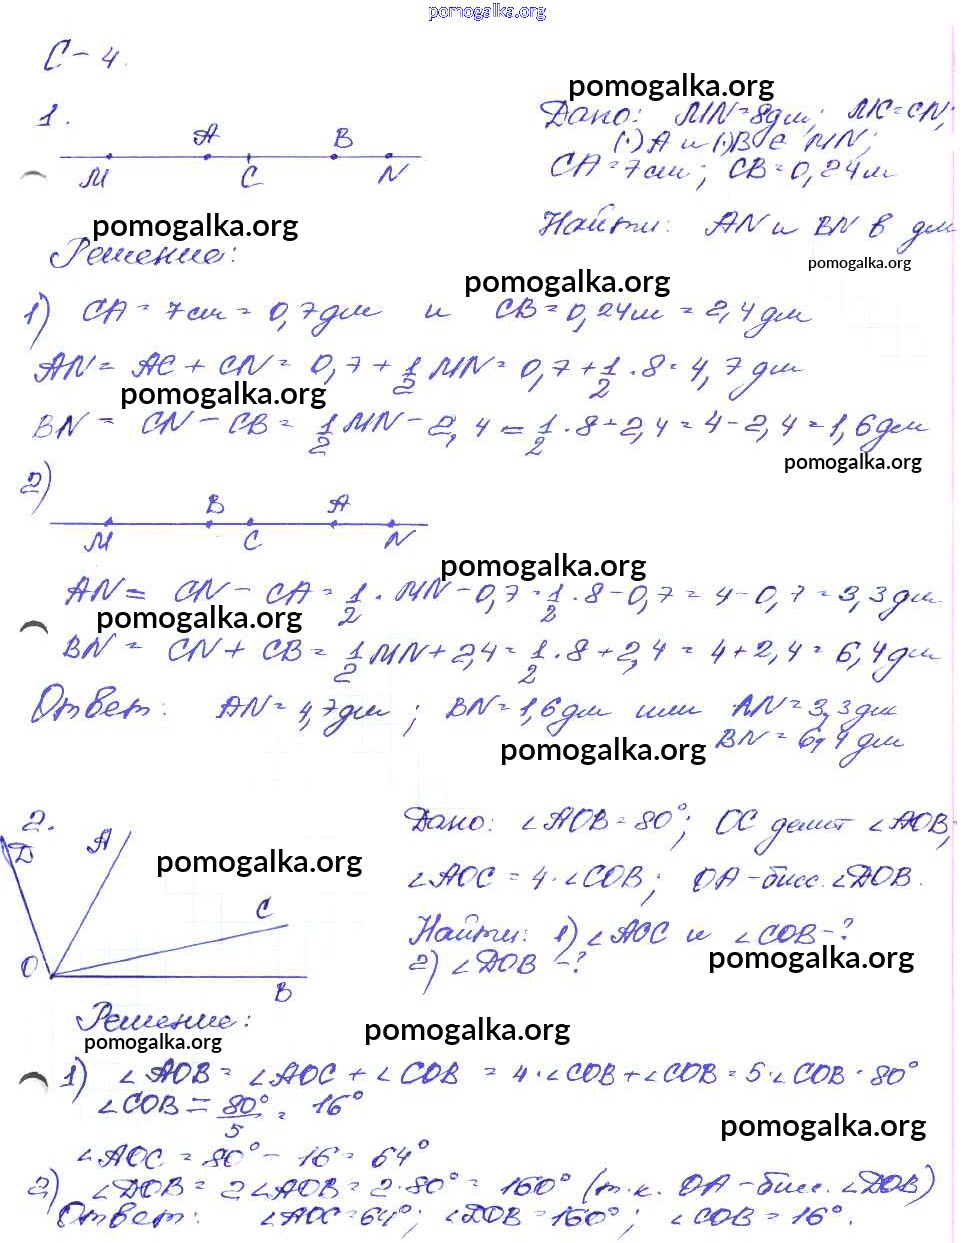 pomogalka.org
С-4.
pomogalka.org
1.
Дано: MN=8дм; MC=CN;
A B
(·)A и (·)B ∈ MN;
M C N
CA=7см; CB=0,24м
pomogalka.org
Найти: AN и BN в дм
Решение:
pomogalka.org
pomogalka.org
1) CA=7см=0,7дм и CB=0,24м=2,4дм
AN=AC+CN=0,7+1/2 MN=0,7+1/2·8=4,7дм
pomogalka.org
BN=CN-CB=1/2 MN-2,4=1/2·8-2,4=4-2,4=1,6дм
pomogalka.org
2)
B A
M C N
pomogalka.org
AN=CN-CA=1/2·MN-0,7=1/2·8-0,7=4-0,7=3,3дм
pomogalka.org
BN=CN+CB=1/2 MN+2,4=1/2·8+2,4=4+2,4=6,4дм
Ответ: AN=4,7дм; BN=1,6дм или AN=3,3дм
BN=6,4дм
pomogalka.org
2.
Дано: ∠AOB=80°; OC делит ∠AOB;
D A
pomogalka.org
∠AOC=4·∠COB; OA-бисс. ∠DOB.
C
Найти: 1) ∠AOC и ∠COB-?
O
2) ∠DOB-?
pomogalka.org
B
Решение:
pomogalka.org
pomogalka.org
1) ∠AOB=∠AOC+∠COB=4·∠COB+∠COB=5·∠COB=80°
∠COB=80°/5=16°
pomogalka.org
∠AOC=80°-16=64°
2) ∠DOB=2∠AOB=2·80°=160° (т.к. OA-бисс. ∠DOB)
Ответ: ∠AOC=64°; ∠DOB=160°; ∠COB=16°.